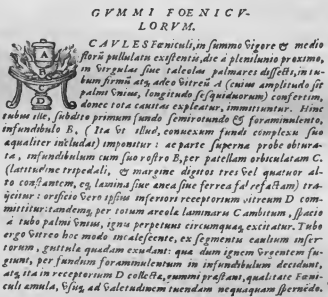 GVMMI FOENICV-
LORVM.
CAVLES Fœniculi, in summo vigore & medio
florū pullulatu existentis, die à plenilunio proximo,
in virgulas siue taleolas palmares dissecti, in tu-
bum firmū atq; adeò vitreū A (cuius amplitudo sit
palmi vnius, longitudo sesquiduorum) confertim,
donec tota cauitas expleatur, immittuntur. Hinc
tubus ille, subdito primùm fundo semirotundo & foraminulento,
infundibulo B, (Ita vt illud, conuexum fundi complexu suo
æqualiter includat) imponitur: ac parte superna probe obtura-
ta, infundibulum cum suo rostro B, per patellam orbiculatam C.
(latitudine tripedali, & margine digitos tres vel quatuor al-
to constantem, eq; lamina siue ænea siue ferrea fa refactam) tra-
ijcitur: orificio verò ipsius inferiori receptorium vitreum D com-
mittitur: tandemq; per totum areola laminaris C ambitum, spacio
à tubo palmi vnius, ignis perpetuus circumquaq; excitatur. Tubo
ergo vitreo hoc modo incalescente, ex segmentis caulium infer-
torum, guttulæ quædam exudant: quæ dum ignem vrgentem fu-
giunt, per fundum foraminulentum in infundibulum decidunt,
atq; ita in receptorium D collectæ, gummi præstant, qualitate Fœni-
culi æmula, vsuq; ad valetudinem tuendam nequaquam spernēdo.
A
B
C
D